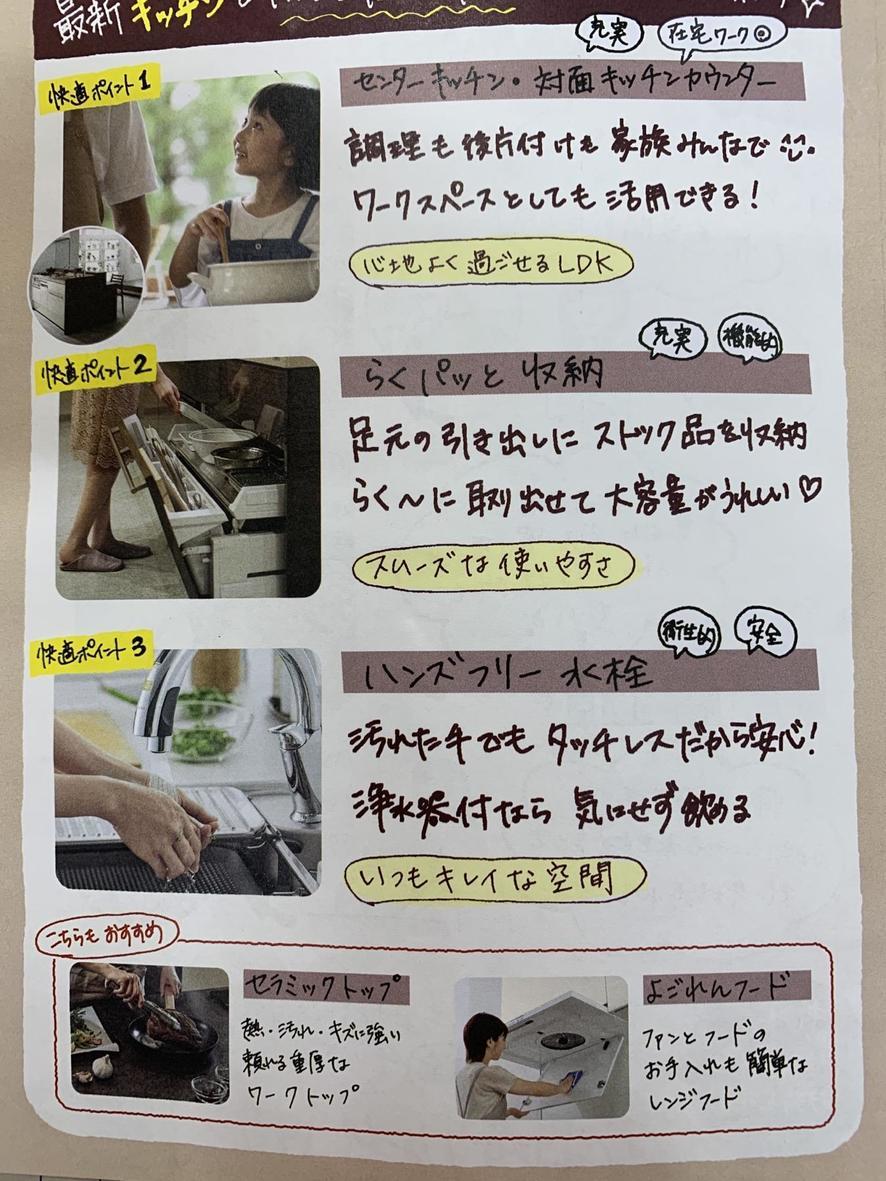 最新 キッチン
充実
在宅ワーク◎
快適ポイント1
センターキッチン・対面キッチンカウンター
調理も後片付けも家族みんなで
ワークスペースとしても活用できる!
心地よく過ごせるLDK
充実
機能的
快適ポイント2
らくパッと収納
足元の引き出しにストック品を収納
らく〜に取り出せて大容量がうれしい♡
スムーズな使いやすさ
衛生的
安全
快適ポイント3
ハンズフリー水栓
汚れた手でもタッチレスだから安心!
浄水器付なら気にせず飲める
いつもキレイな空間
こちらもおすすめ
セラミックトップ
熱・汚れ・キズに強い
頼れる重厚な
ワークトップ
よごれんフード
ファンとフードの
お手入れも簡単な
レンジフード